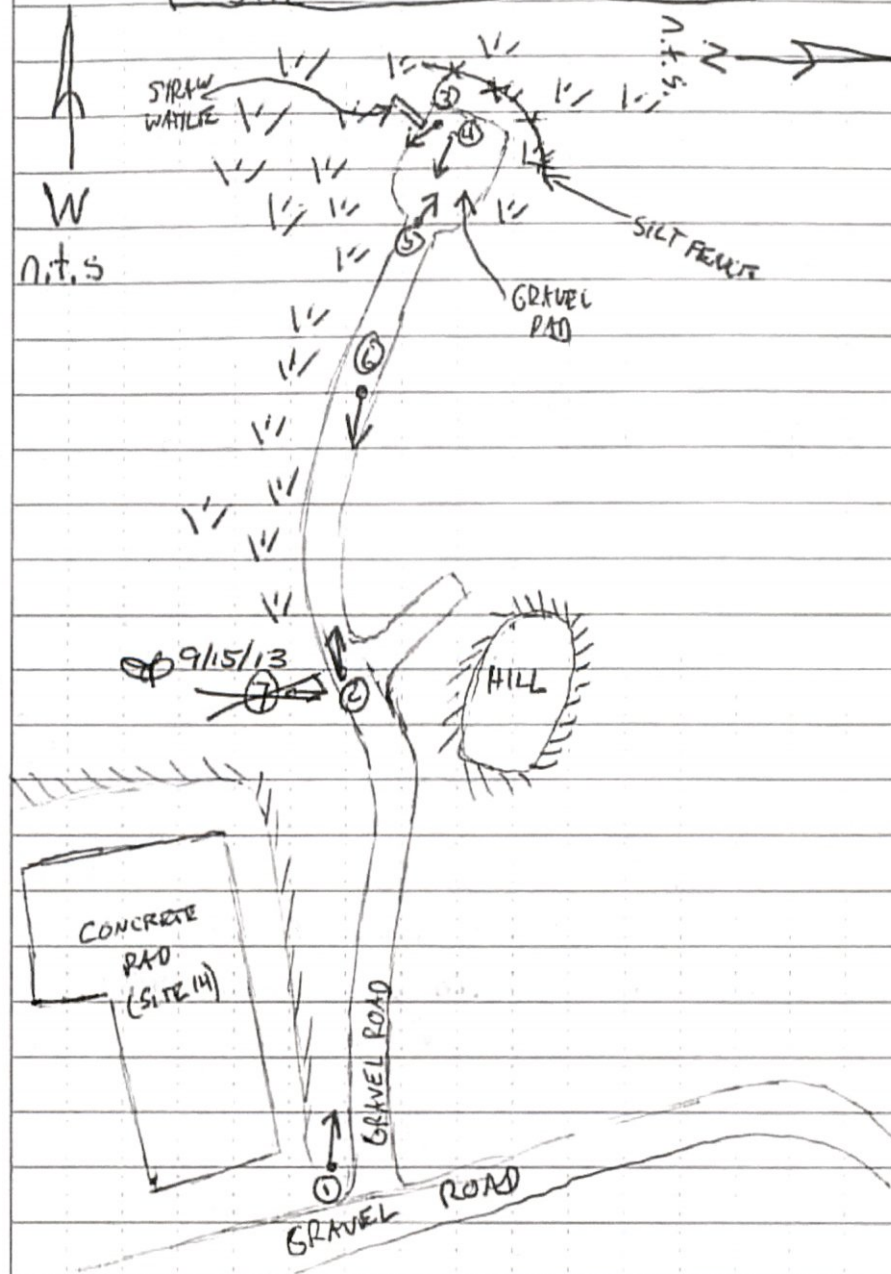 n.t.s.
N
STRAW
WATTLE
3
4
W
n.t.s
5
SILT FENCE
GRAVEL
PAD
6
9/15/13
7
2
HILL
CONCRETE
PAD
(SITE 14)
GRAVEL ROAD
1
GRAVEL ROAD